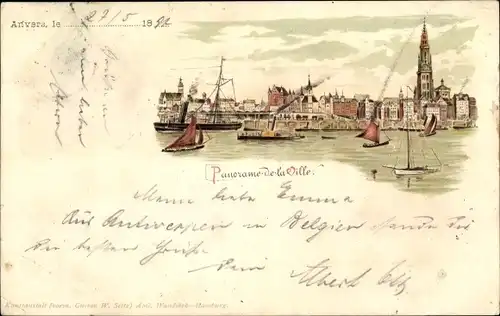 Anvers, le 27/5 1892
Panorama de la Ville.
Meine liebe Emma
Aus Antwerpen in Belgien sende dir
die besten Grüße
Dein Albert
Kunstanstalt (vorm. Gustav W. Seitz) A.G. Wandsbek-Hamburg.